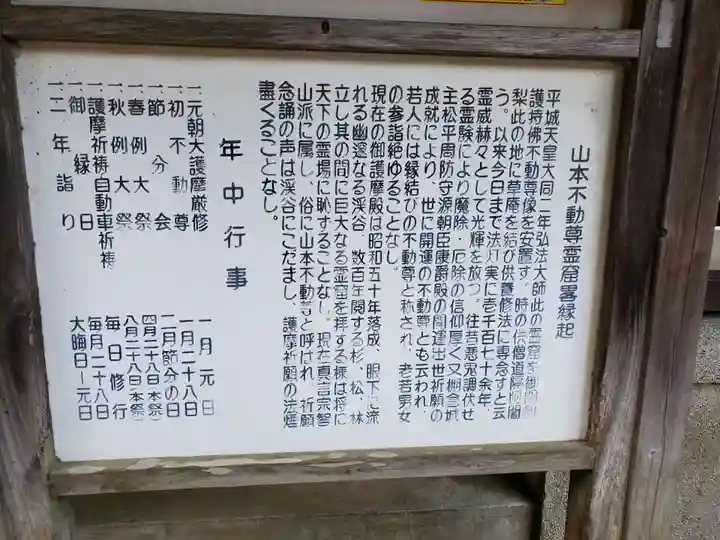 山本不動尊霊窟畧縁起
平城天皇大同二年弘法大師此の霊窟を御開創
護持佛不動尊像を安置す。時の供僧道隔阿闍
梨此の地に草庵を結び供養修法に専念すと云
う。以来今日まで法灯実に壱千百七十余年、
霊威赫々として光輝を放つ。往昔悪鬼調伏せ
る霊験により魔除・厄除の信仰厚く又棚倉城
主松平周防守源朝臣康爵殿の開運出世祈願の
成就により、世に開運の不動尊とも云われ、
若人には縁結びの不動尊と称され、老若男女
の参詣絶ゆることなし。
現在の御護摩殿は昭和五十年落成、眼下に流
れる幽邃なる渓谷、数百年閲する杉、松、林
立し其の間に巨大なる霊窟を拝する様は将に
天下の霊場に恥することなし。現在真言宗智
山派に属し、俗に山本不動尊と呼ばれ、祈願
念誦の声は渓谷にこだまし、護摩祈願の法煙
盡くることなし。
年中行事
一、元朝大護摩厳修 一月元日
一、初不動尊 一月二十八日
一、節分会 二月節分の日
一、春例大祭 四月二十八日(本祭)
一、秋例大祭 八月二十八日(本祭)
一、護摩祈祷自動車祈祷 毎日修行
一、御縁日 毎月二十八日
一、二年詣り 大晦日〜元日